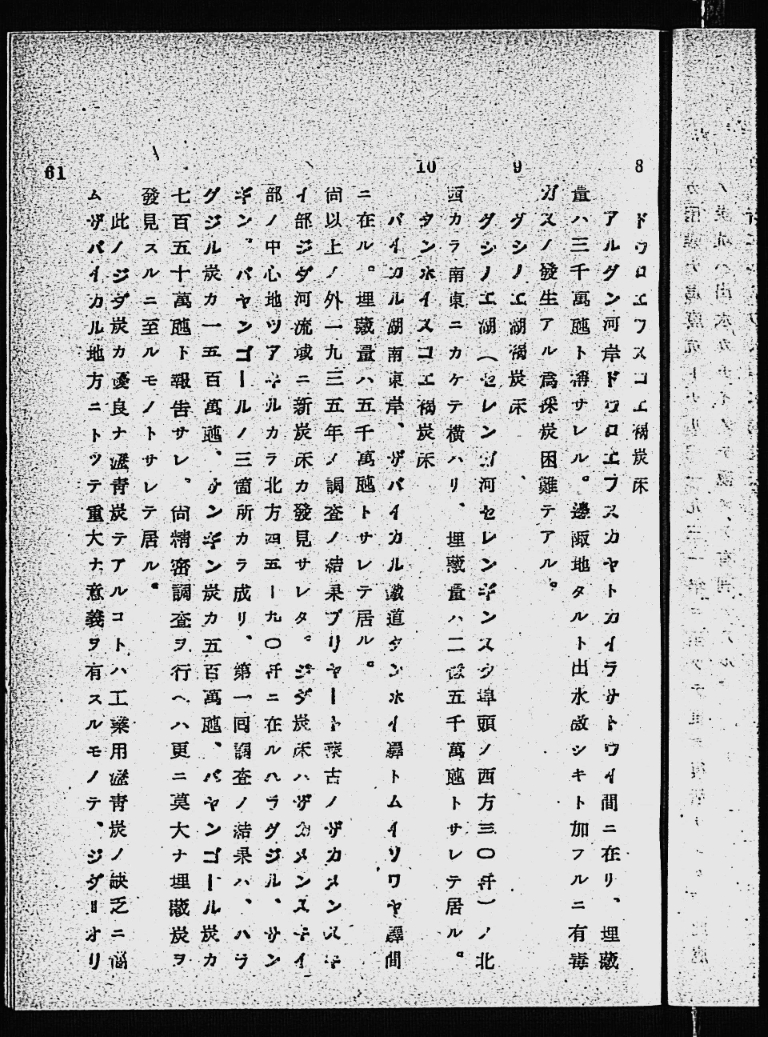 8 ドウロエフスコエ褐炭床
アルグン河岸ドウロエフスカヤトカイラサトウイ間ニ在リ、埋藏
量ハ三千萬瓲ト稱サレル。邊陬地タルト出水激シキト加フルニ有毒
ガスノ發生アル爲採炭困難テアル。
9 グシノエ湖褐炭床
グシノエ湖(セレンガ河セレンギンスク埠頭ノ西方三〇粁)ノ北
西カラ南東ニカケテ横ハリ、埋藏量ハ二億五千萬瓲トサレテ居ル。
10 タンホイスコエ褐炭床
バイカル湖南東岸、ザバイカル鐵道タンホイ驛トムイソワヤ驛間
ニ在ル。埋藏量ハ五千萬瓲トサレテ居ル。
尙以上ノ外一九三五年ノ調査ノ結果ブリヤート蒙古ノザカメンスキ
イ部ジダ河流域ニ新炭床カ發見サレタ。ジダ炭床ハザカメンスキイ
部ノ中心地ツアキルカラ北方四五―九〇粁ニ在ルハラグジル、サン
ギン、バヤンゴールノ三箇所カラ成リ、第一回調査ノ結果ハ、ハラ
グジル炭カ一五百萬瓲、サンギン炭カ五百萬瓲、バヤンゴール炭カ
七百五十萬瓲ト報吿サレ、尙精密調査ヲ行ヘハ更ニ莫大ナ埋藏炭ヲ
發見スルニ至ルモノトサレテ居ル。
此ノジダ炭カ優良ナ瀝靑炭テアルコトハ工業用瀝靑炭ノ缺乏ニ惱
ムザバイカル地方ニトツテ重大ナ意義ヲ有スルモノテ、ジダ＝オリ
61